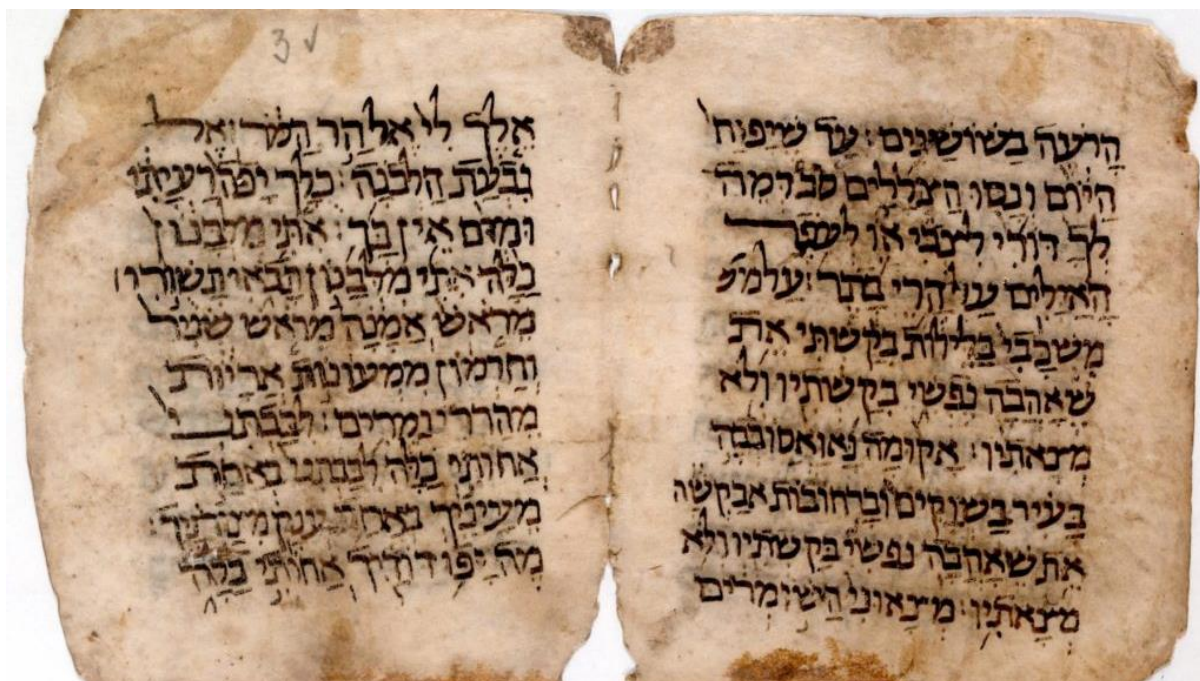 3 v
הרעה בשושנים : עד שיפוח
היום ונסו הצללים סב דמה
לך דודי לצבי או לעפר
האילים על הרי בתר : על מש
משכבי בלילות בקשתי את
שאהבה נפשי בקשתיו ולא
מצאתיו : אקומה נא ואסובבה
בעיר בשוקים וברחובות אבקשה
את שאהבה נפשי בקשתיו ולא
מצאתיו : מצאוני השומרים
אלך לי אל הר המר ואל
גבעת הלבנה : כלך יפה רעיתי
ומום אין בך : אתי מלבנון
כלה אתי מלבנון תבאי תשורי
מראש אמנה מראש שניר
וחרמון ממעונות אריות
מהררי נמרים : לבבתני
אחותי כלה לבבתני באחת
מעיניך באחד ענק מצורניך :
מה יפו דודיך אחותי כלה